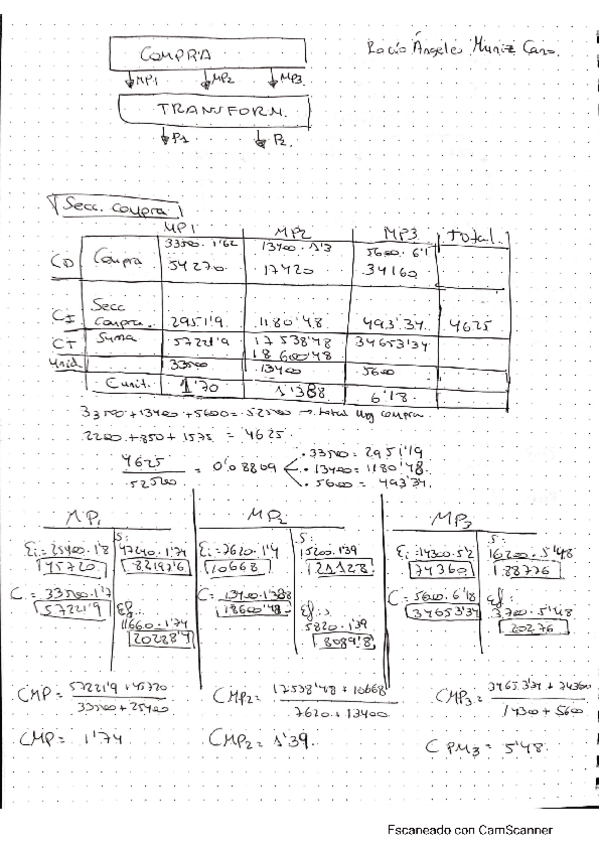 COMPRA
Rocío Ángeles Muñiz Caro.
MP1 MP2 MP3
TRANSFORM.
P1 P2
Secc. compra
MP1 MP2 MP3 Total.
33500.1'62 13400.1'3 5600.6'1
CD Compra 54270 17420 34160
CI Secc Compra. 2951'9 1180'48 493'34 4625
CT Suma 57221'9 17538'48 34653'34
18600'48
Unid. 33500 13400 5600
C unit. 1'70 1'388 6'18
33500+13400+5600=52500 → total Mg compra
2200+850+1575 = 4625.
4625
52500
= 0'08809
.33500=2951'19
.13400=1180'48.
.5600=493'34.
MP1 MP2 MP3
S: S: S:
Ei=25400.1'8 47240.1'74 Ei=7620.1'4 15200.1'39 Ei=14300.5'2 16200.5'48
45720 82197'6 10668 21128 74360 88776
C=33500.1'7 C=13400.1'388 C=5600.6'18
57221'9 Ef: 18600'48 Ef: 34653'34 Ef:
11660.1'74 5820.1'39 3700.5'48
20288'4 8089'8 20276
CMP= 57221'9+45720 CMP2= 17538'48+10668 CMP3= 34653'34+74360
33500+25400 7620+13400 14300+5600
CMP= 1'74 CMP2=1'39. CPM3= 5'48.
Escaneado con CamScanner